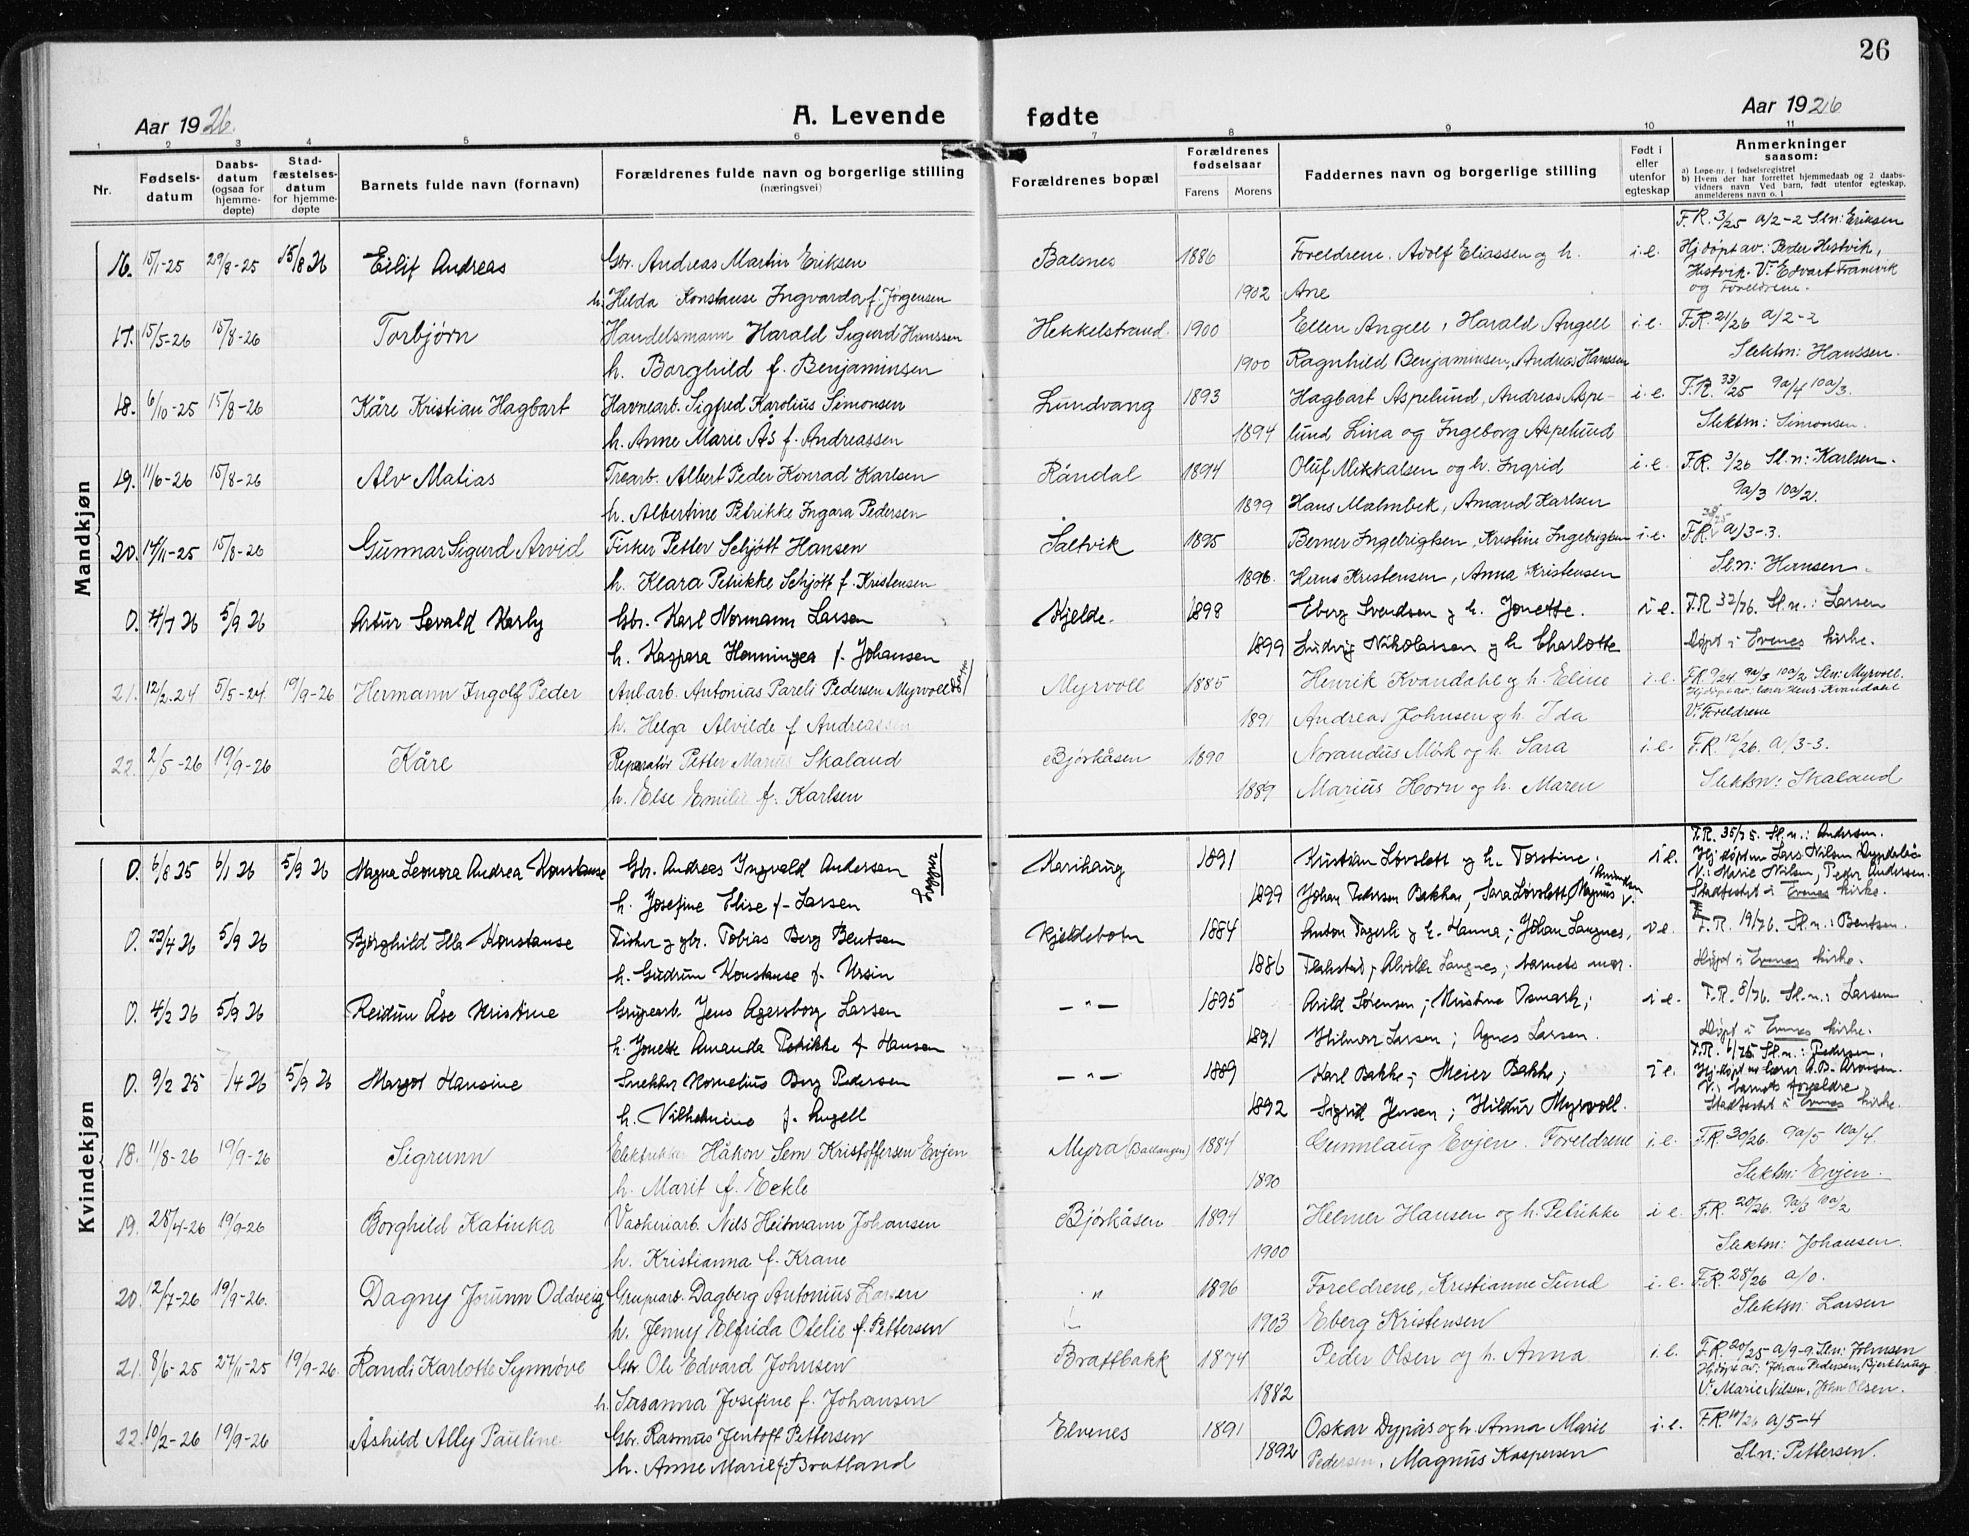 26
Aar 1926.
A. Levende
fødte
Aar 1926
1 2 3 4 5 6 7 8 9 10 11
Nr.
Fødsels-
datum
Daabs-
datum
(ogsaa for
hjemme-
døpte)
Stad-
fæstelses-
datum
for hjemme-
døpte
Barnets fulde navn (fornavn)
Forældrenes fulde navn og borgerlige stilling
(næringsvei)
Forældrenes bopæl
Forældrenes
fødselsaar
Farens Morens
Faddernes navn og borgerlige stilling
Født i
eller
utenfor
egteskap
Anmerkninger
saasom:
a) Løpe-nr. i fødselsregistret
b) Hvem der har forrettet hjemmedaab og 2 daabs-
vidners navn Ved barn, født utenfor egteskap,
anmelderens navn o. l
Mandkjøn
F.R. 3/25 a/2-2 Sln: Eriksen
16. 15/1-25 29/8-25 15/8 26 Eilif Andreas Gbr. Andreas Martin Eriksen Balsnes 1886 Foreldrene. Adolf Eliassen og h. i.e. Hj.døpt av: Peder Hestvik,
Hestvik. V. Edvart Framvik
h. Hilda Konstanse Ingvarda f. Jørgensen 1902 Ane og Foreldrene.
17. 15/5-26 15/8-26 Torbjørn Handelsmann Harald Sigurd Hanssen Hekkelstrand 1900 Ellen Angell, Harald Angell i.e. F.R. 21/26 a/2-2
h. Borghild f. Benjaminsen 1900 Ragnhild Benjaminsen, Andreas Hanssen Slektsn: Hanssen.
18. 6/10-25 15/8-26 Kåre Kristian Hagbart Havnearb. Sigfred Karolius Simonsen Lundvang 1893 Hagbart Aspelund, Andreas Aspe- i.e. F.R. 33/25 9a/4 10a/3.
h. Anne Marie Ås f. Andreassen 1894 lund Lina og Ingeborg Aspelund Slektsn: Simonsen.
19. 11/6-26 15/8-26 Alv Matias Trearb. Albert Peder Konrad Karlsen Råndal 1894 Oluf Mikkalsen og h. Ingrid i.e. F.R. 3/26 Sl.n: Karlsen.
h. Albertine Petrikke Ingara Pedersen 1899 Hans Malmbek, Amand Karlsen 9a/3 10a/2.
20. 14/11-25 15/8-26 Gunnar Sigurd Arvid Fisker Petter Schjött Hansen Saltvik 1895 Berner Ingebrigtsen, Kristine Ingebrigtsen i.e. F.R. 38/25 a/3-3.
h. Klara Petrikke Schjött f. Kristensen 1896. Hans Kristensen, Anna Kristensen Sl.n: Hansen.
0. 4/7 26 5/9 26 Artur Sevald Karby Gbr. Karl Normann Larsen Kjelde. 1898 Eberg Svendsen g h. Jonette. i e. F.R 32/26. Sl.n.: Larsen
h. Kaspara Henningea f. Johansen 1899 Ludvig Nikolaisen g h Charlotte Døpt i Evenes kirke.
21. 12/2.24 5/5-24 19/9-26 Hermann Ingolf Peder Anl.arb. Antonias Pareli Pedersen Myrvoll Myrvoll 1885 Henrik Kvandahl og h. Eline i.e. F.R. 9/24 9a/3 10a/2 Sln: Myrvoll.
Hj.døpt av: lærer Henr. Kvandahl
h. Helga Alvilde f Andreassen 1891 Andreas Johnsen g h. Ida V. Foreldrene
22. 2/5-26 19/9-26 Kåre Reparatør Petter Marius Skaland Bjørkåsen 1890 Norandus Mörk og h. Sara i.e. F.R. 12/26. a/3-3.
h. Else Emilie f. Karlsen 1889 Marius Horn og h. Maren Slektsn: Skaland
Kvindekjøn
F.R. 35/25. Sl.n.: Andersen.
0. 6/8 25 6/1 26 5/9 26 Magna Leonora Andrea Konstanse Gbr. Andreas Ingvald Andersen Karihaug 1891 Kristian Løvslett g h. Torstine; i e. Hj.døpt av Lars Nilsen
V.: Marie Nilsen, Peder Andersen.
h. Josefine Elise f. Larsen 1899 Johan Pedersen Bakken, Sara Løvslett, Magnus Stadfestet i Evenes kirke.
0. 23/4 26 5/9 26 Bjørghild Ila Konstanse Fisker g gbr. Tobias Berg Bentsen Kjeldebotn 1884 Anton Fagerli g h. Hanna; Johan Langnes, F.R. 19/26. Sl.n.: Bentsen.
h. Gudrun Konstanse f. Ursin 1886 Flakstad, Alvilde Langnes; barnets mor. Døpt i Evenes kirke.
0. 4/2 26 5/9 26 Reidun Åse Kristine Grupearb. Jens Agersborg Larsen — " — 1895 Arild Sørensen; Kristine Osmark; i e. F.R. 8/26. Sl.n.: Larsen
h. Jonette Amanda Petrikke f Hansen 1891 Hilmar Larsen; Agnes Larsen. Døpt i Evenes kirke.
F.R. 6/25 Sl.n.: Pedersen.
0. 9/2 25 /4 26 5/9 26 Margot Hansine Snekker Kornelius Berg Pedersen — " — 1889 Karl Bakke; Meier Bakke; i e. Hj.døpt av lærer A.B. Aronsen.
V.: barnets forældre
h. Vilhelmine f. Angell 1892 Sigrid Jensen; Hildur Myrvoll. Stadfestet i Evenes kirke.
18. 11/8-26 19/9-26 Sigrunn Elektriker Håkon Sem Kristoffersen Evjen Myra (Ballangen) 1884 Gunnlaug Evjen. Foreldrene i.e. F.R. 30/26. 9a/5 10a/4.
h. Marit f. Eckle 1890 Slektsn: Evjen.
19. 28/4-26 19/9-26 Borghild Katinka Vaskeriarb. Nils Heitmann Johansen Bjørkåsen 1894 Helmer Hansen og h. Petrikke i e. F.R. 20/26. 9a/3 10a/2
h. Kristianna f. Krane 1900 Slektsn: Johansen.
20. 12/7-26 19/9-26. Dagny Jorunn Oddveig Grupearb. Dagberg Antonius Larsen " 1896 Foreldrene, Kristianne Sund i.e. F.R. 28/26 a/0.
h. Jenny Elfrida Otelie f. Pettersen 1903 Eberg Kristensen Slektsn: Larsen
21. 8/6-25 27/11-25 19/9-26. Randi Karlotte Synnøve Gbr Ole Edvard Johnsen Brattbakk 1874 Peder Olsen og h. Anna i.e. F.R. 20/25-a/9-9. Sln: Johnsen
Hj.døpt av: Johan Pedersen, Bjerkhaug
h. Susanna Josefine f. Johansen 1882 V. Marie Nilsen, John Olsen.
22. 10/2-26 19/9-26 Åshild Ally Pauline Gbr. Rasmus Jentoft Pettersen Elvenes 1891 Oskar Dypås og h. Anna Marie i.e. F.R. 10/26 a/5-4
h. Anne Marie f. Bratland 1892 Pedersen, Magnus Kaspersen Sl.n: Pettersen.